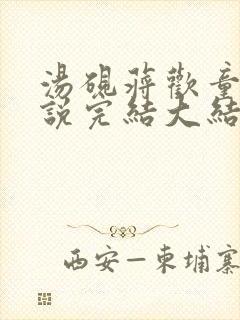 湯硯蔣歡童
說完結大結
西安—柬埔寨